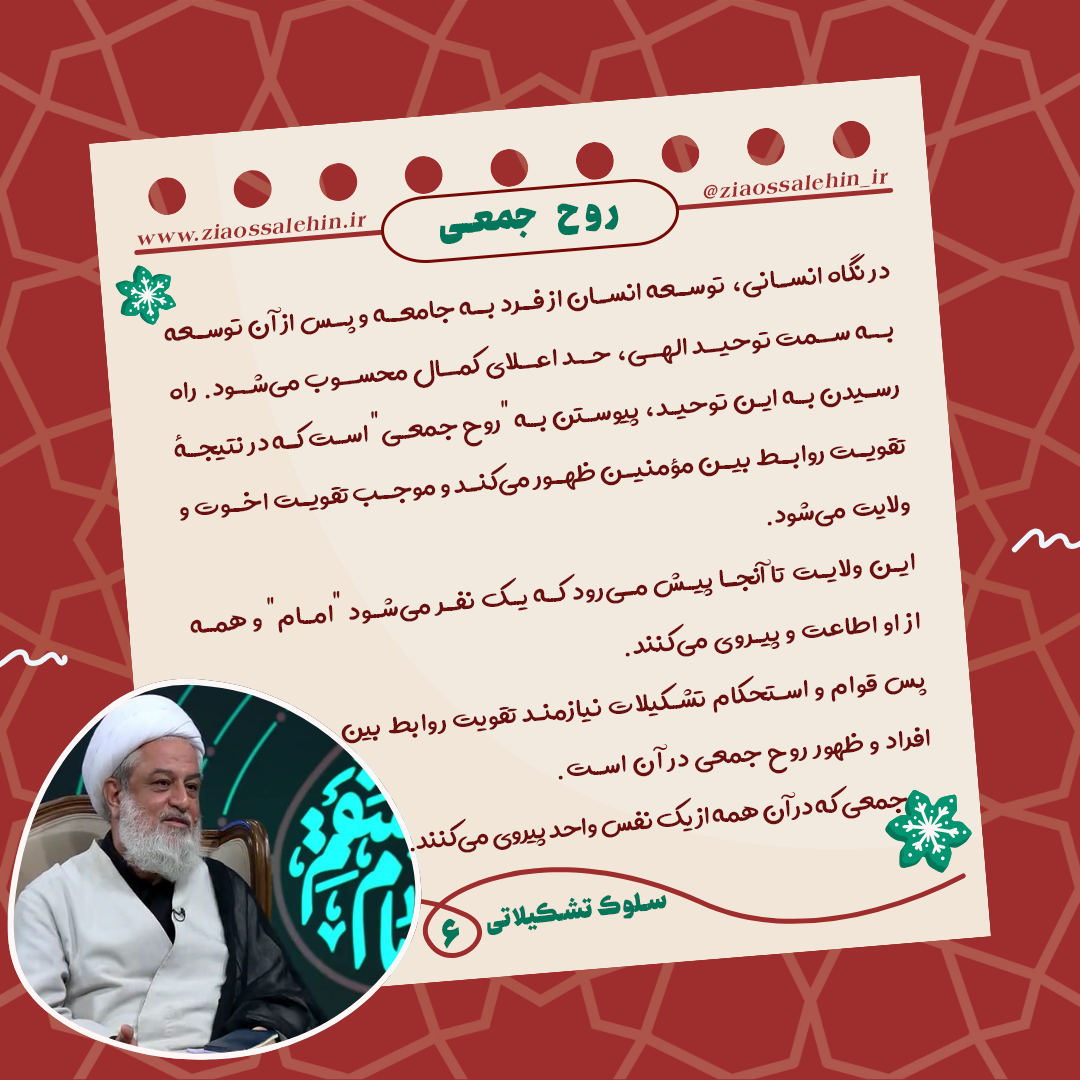 www.ziaossalehin.ir
@ziaossalehin_ir
روح جمعی
در نگاه انسانی، توسعه انسان از فرد به جامعه و پس از آن توسعه
به سمت توحید الهی، حد اعلای کمال محسوب می‌شود. راه
رسیدن به این توحید، پیوستن به "روح جمعی" است که در نتیجهٔ
تقویت روابط بین مؤمنین ظهور می‌کند و موجب تقویت اخوت و
ولایت می‌شود.
این ولایت تا آنجا پیش می‌رود که یک نفر می‌شود "امام" و همه
از او اطاعت و پیروی می‌کنند.
پس قوام و استحکام تشکیلات نیازمند تقویت روابط بین
افراد و ظهور روح جمعی در آن است.
جمعی که در آن همه از یک نفس واحد پیروی می‌کنند.
سلوک تشکیلاتی
۶